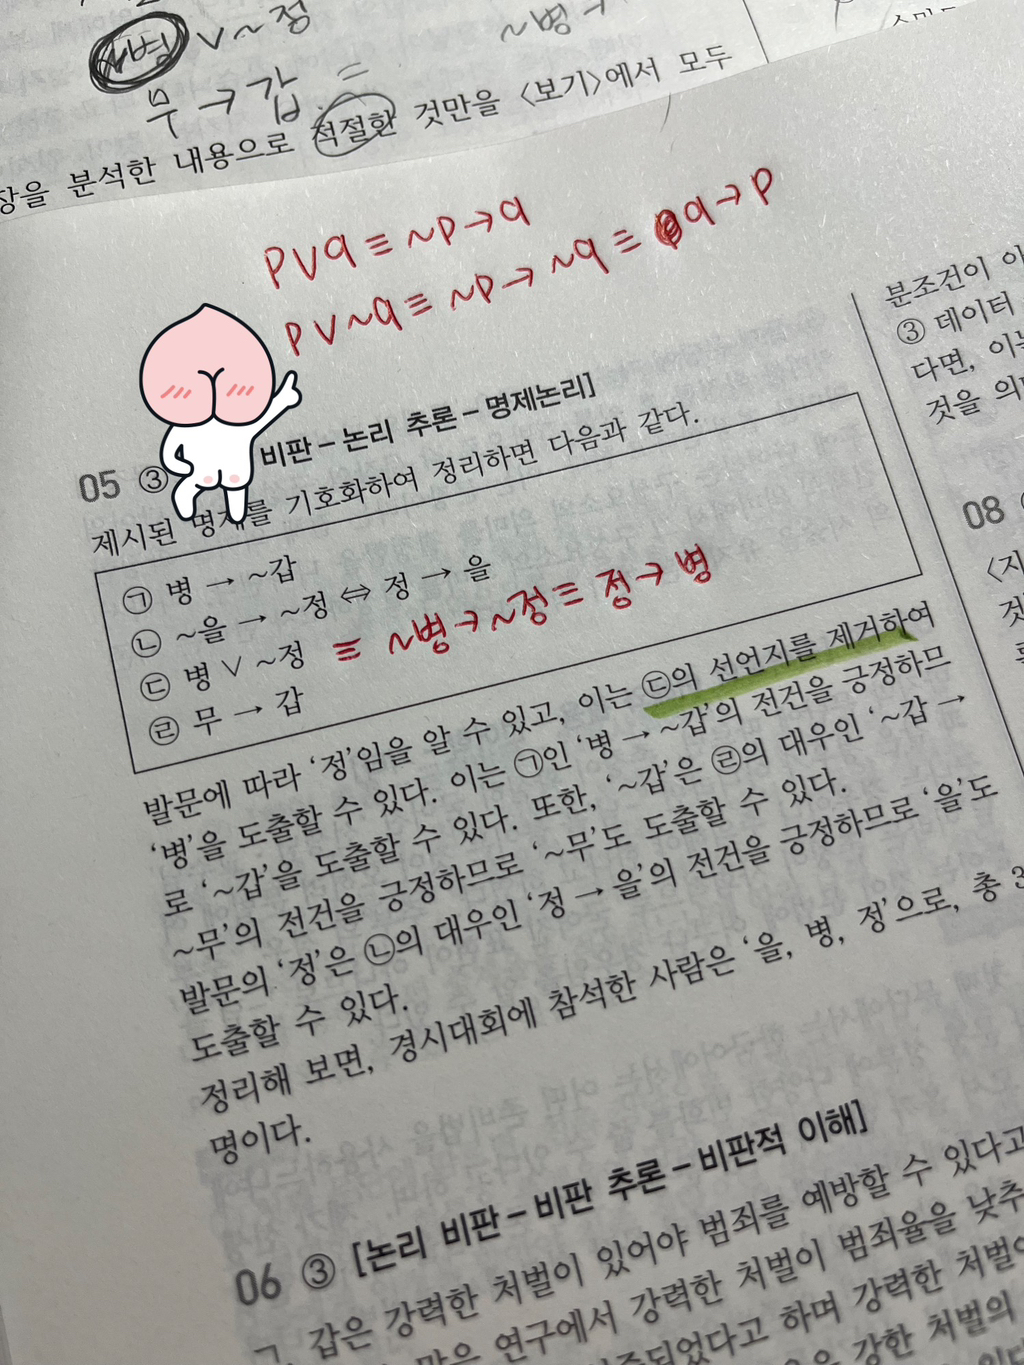 ~병 ∨ ~정
~병 →
무 → 갑 =
장을 분석한 내용으로 적절한 것만을 〈보기〉에서 모두
P∨q ≡ ~P→q
P∨~q ≡ ~P→~q ≡ q→P
05 ③ 비판 – 논리 추론 – 명제논리]
제시된 명제를 기호화하여 정리하면 다음과 같다.
㉠ 병 → ~갑
㉡ ~을 → ~정 ⇔ 정 → 을
㉢ 병 ∨ ~정 ≡ ~병→~정 ≡ 정→병
㉣ 무 → 갑
발문에 따라 ‘정’임을 알 수 있고, 이는 ㉢의 선언지를 제거하여
‘병’을 도출할 수 있다. 이는 ㉠인 ‘병 → ~갑’의 전건을 긍정하므
로 ‘~갑’을 도출할 수 있다. 또한, ‘~갑’은 ㉣의 대우인 ‘~갑 →
~무’의 전건을 긍정하므로 ‘~무’도 도출할 수 있다.
발문의 ‘정’은 ㉡의 대우인 ‘정 → 을’의 전건을 긍정하므로 ‘을’도
도출할 수 있다.
정리해 보면, 경시대회에 참석한 사람은 ‘을, 병, 정’으로, 총 3
명이다.
06 ③ [논리 비판 – 비판 추론 – 비판적 이해]
ㄱ. 갑은 강력한 처벌이 있어야 범죄를 예방할 수 있다고
많은 연구에서 강력한 처벌이 범죄율을 낮추
되었다고 하며 강력한 처벌
강한 처벌의
분조건이 아
③ 데이터
다면, 이는
것을 의미
08
〈지